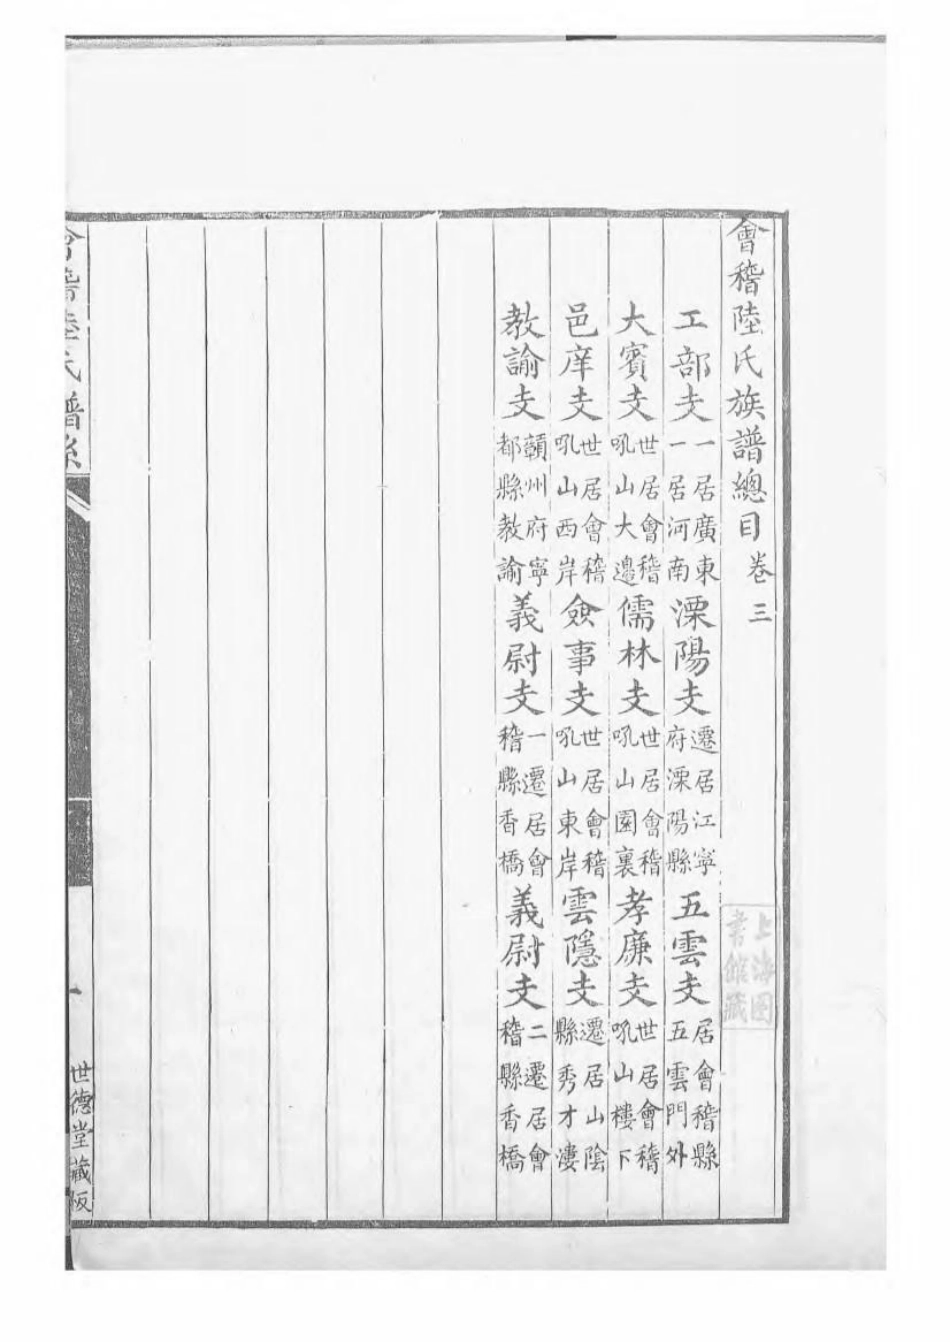 會稽陸氏族譜總目 卷三
工部支 一居廣東一居河南 溧陽支 遷居江寧府溧陽縣 五雲支 居會稽縣五雲門外
大賓支 世居會稽吼山大邉 儒林支 世居會稽吼山園裏 孝廉支 世居會稽吼山樓下
邑庠支 世居會稽吼山西岸 僉事支 世居會稽吼山東岸 雲隱支 遷居山陰縣秀才凄
教諭支 贛州府寧都縣教諭 義尉支 一遷居會稽縣香橋 義尉支 二遷居會稽縣香橋
會稽陸氏譜系 一 世德堂藏板
上海圖書館藏